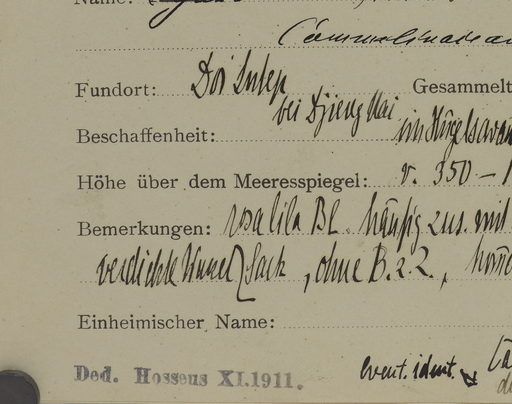 Name:
Commelinaceae
Fundort: Doi Sutep Gesammelt
bei Djieng Mai
Beschaffenheit: im Hügelsavan
Höhe über dem Meeresspiegel: v. 350 – 1
Bemerkungen: rosa lila Bl. häufig zus. mit
verdickte Wurzel Sack, ohne B. z. Z.,
Einheimischer Name:
Ded. Hosseus XI.1911.
event. ident.